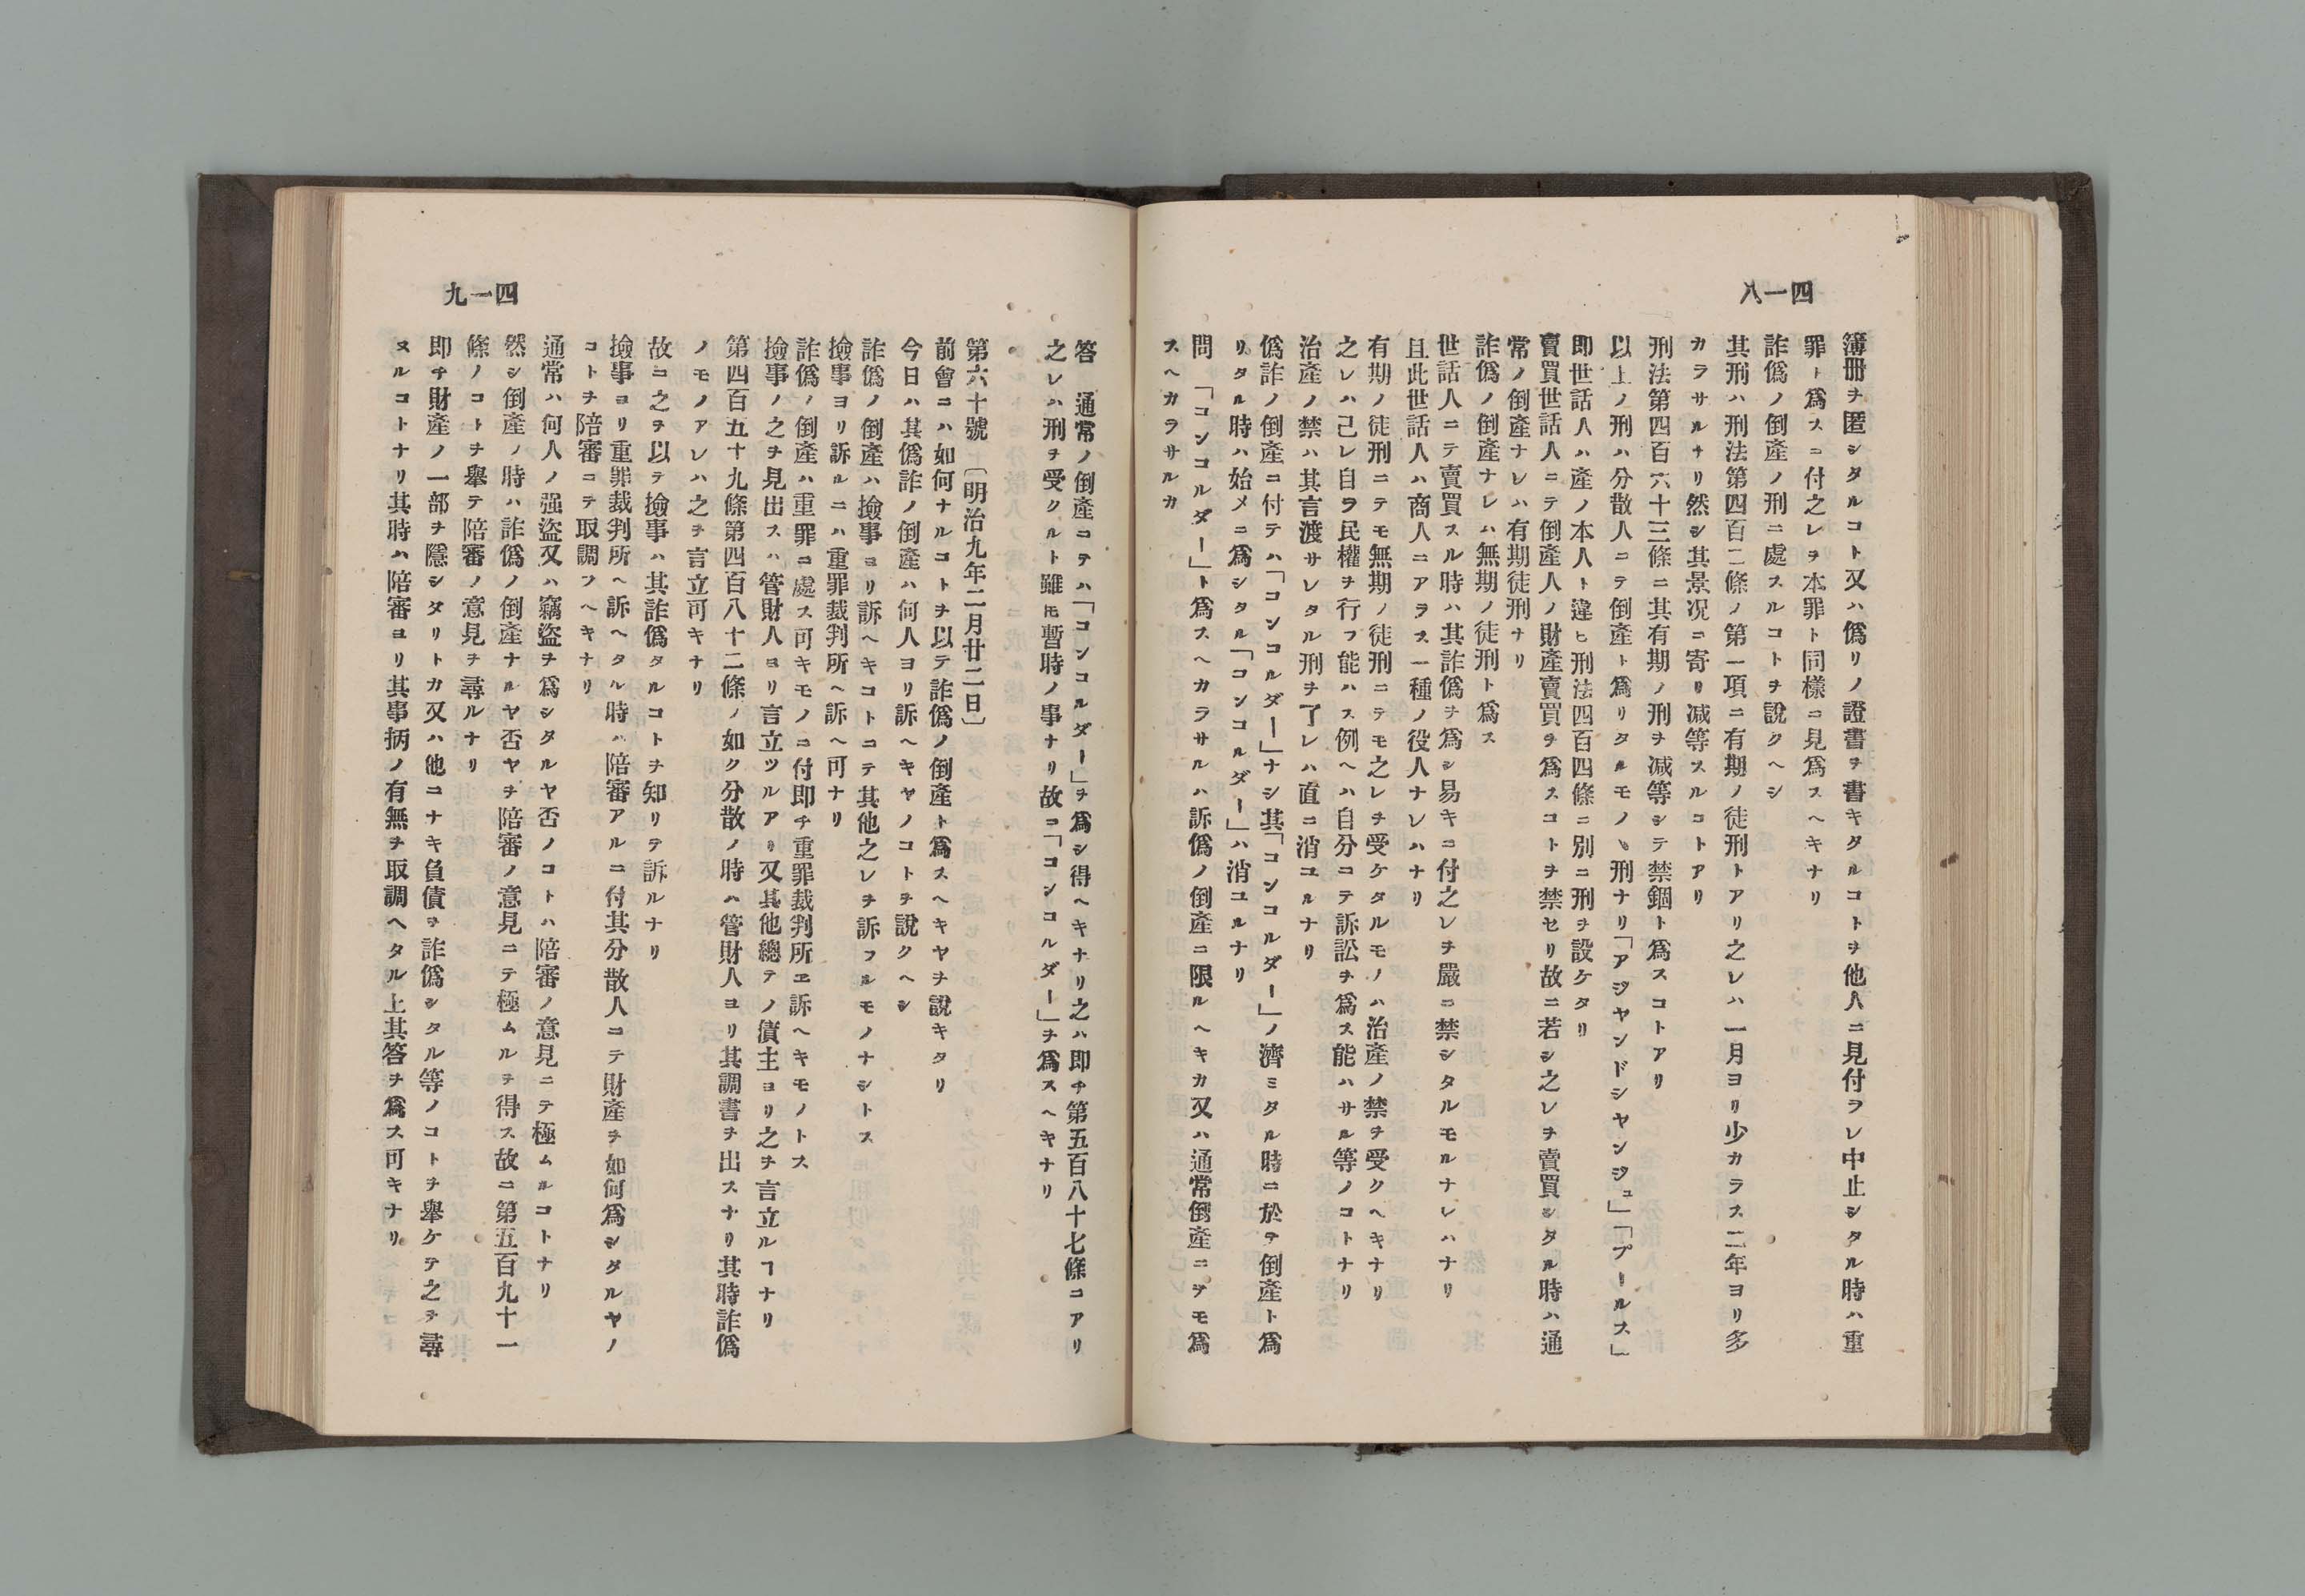 四一八
簿冊ヲ匿シタルコト又ハ僞リノ證書ヲ書キタルコトヲ他人ニ見付ラレ中止シタル時ハ重
罪ト爲スニ付之レヲ本罪ト同樣ニ見爲スヘキナリ
詐僞ノ倒產ノ刑ニ處スルコトヲ說クヘシ
其刑ハ刑法第四百二條ノ第一項ニ有期ノ徒刑トアリ之レハ一月ヨリ少カラス二年ヨリ多
カラサルナリ然シ其景況ニ寄リ减等スルコトアリ
刑法第四百六十三條ニ其有期ノ刑ヲ减等シテ禁錮ト爲スコトアリ
以上ノ刑ハ分散人ニテ倒產ト爲リタルモノヽ刑ナリ「アジヤンドシヤンジュ」「プールス」
即世話人ハ產ノ本人ト違ヒ刑法四百四條ニ別ニ刑ヲ設ケタリ
賣買世話人ニテ倒產人ノ財產賣買ヲ爲スコトヲ禁セリ故ニ若シ之レヲ賣買シタル時ハ通
常ノ倒產ナレハ有期徒刑ナリ
詐僞ノ倒產ナレハ無期ノ徒刑ト爲ス
世話人ニテ賣買スル時ハ其詐僞ヲ爲シ易キニ付之レヲ嚴ニ禁シタルモルナレハナリ
且此世話人ハ商人ニアラス一種ノ役人ナレハナリ
有期ノ徒刑ニテモ無期ノ徒刑ニテモ之レヲ受ケタルモノハ治產ノ禁ヲ受クヘキナリ
之レハ己レ自ラ民權ヲ行フ能ハス例ヘハ自分ニテ訴訟ヲ爲ス能ハサル等ノコトナリ
治產ノ禁ハ其言渡サレタル刑ヲ了レハ直ニ消ユルナリ
僞詐ノ倒產ニ付テハ「コンコルダー」ナシ其「コンコルダー」ノ濟ミタル時ニ於テ倒產ト爲
リタル時ハ始メニ爲シタル「コンコルダー」ハ消ユルナリ
問　「コンコルダー」ト爲スヘカラサルハ訴僞ノ倒產ニ限ルヘキカ又ハ通常倒產ニテモ爲
スヘカラサルカ
四一九
答　通常ノ倒產ニテハ「コンコルダー」ヲ爲シ得ヘキナリ之ハ即チ第五百八十七條ニアリ
之レハ刑ヲ受クルト雖モ暫時ノ事ナリ故ニ「コンコルダー」ヲ爲スヘキナリ
第六十號〔明治九年二月廿二日〕
前會ニハ如何ナルコトヲ以テ詐僞ノ倒產ト爲スヘキヤヲ說キタリ
今日ハ其僞詐ノ倒產ハ何人ヨリ訴ヘキヤノコトヲ說クヘシ
詐僞ノ倒產ハ撿事ヨリ訴ヘキコトニテ其他之レヲ訴フルモノナシトス
撿事ヨリ訴ルニハ重罪裁判所ヘ訴ヘ可ナリ
詐僞ノ倒產ハ重罪ニ處ス可キモノニ付即チ重罪裁判所ヱ訴ヘキモノトス
撿事ノ之ヲ見出スハ管財人ヨリ言立ツルアリ又其他總テノ債主ヨリ之ヲ言立ルヿナリ
第四百五十九條第四百八十二條ノ如ク分散ノ時ハ管財人ヨリ其調書ヲ出スナリ其時詐僞
ノモノアレハ之ヲ言立可キナリ
故ニ之ヲ以テ撿事ハ其詐僞タルコトヲ知リテ訴ルナリ
撿事ヨリ重罪裁判所ヘ訴ヘタル時ハ陪審アルニ付其分散人ニテ財產ヲ如何爲シタルヤノ
コトヲ陪審ニテ取調フヘキナリ
通常ハ何人ノ强盜又ハ竊盜ヲ爲シタルヤ否ノコトハ陪審ノ意見ニテ極ムルコトナリ
然シ倒產ノ時ハ詐僞ノ倒產ナルヤ否ヤヲ陪審ノ意見ニテ極ムルヲ得ス故ニ第五百九十一
條ノコトヲ擧テ陪審ノ意見ヲ尋ルナリ
即チ財產ノ一部ヲ隱シタリトカ又ハ他ニナキ負債ヲ詐僞シタル等ノコトヲ擧ケテ之ヲ尋
ヌルコトナリ其時ハ陪審ヨリ其事柄ノ有無ヲ取調ヘタル上其答ヲ爲ス可キナリ